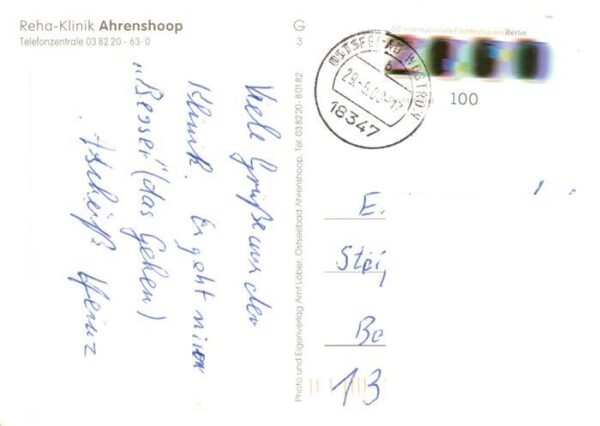 Reha-Klinik Ahrenshoop
Telefonzentrale 03 82 20 - 63-0
G
3
50 Internationale Filmfestspiele Berlin
100
OSTSEEBAD WUSTROW
b
29.-5.00-17
18347
Viele Grüße aus der
Klinik. Es geht mir
"Besser" (das Gehen)
Heinz
E.
Stei
Be
13
Photo und Eigenverlag Arnt Löber, Ostseebad Ahrenshoop, Tel. 03 82 20 - 801 82